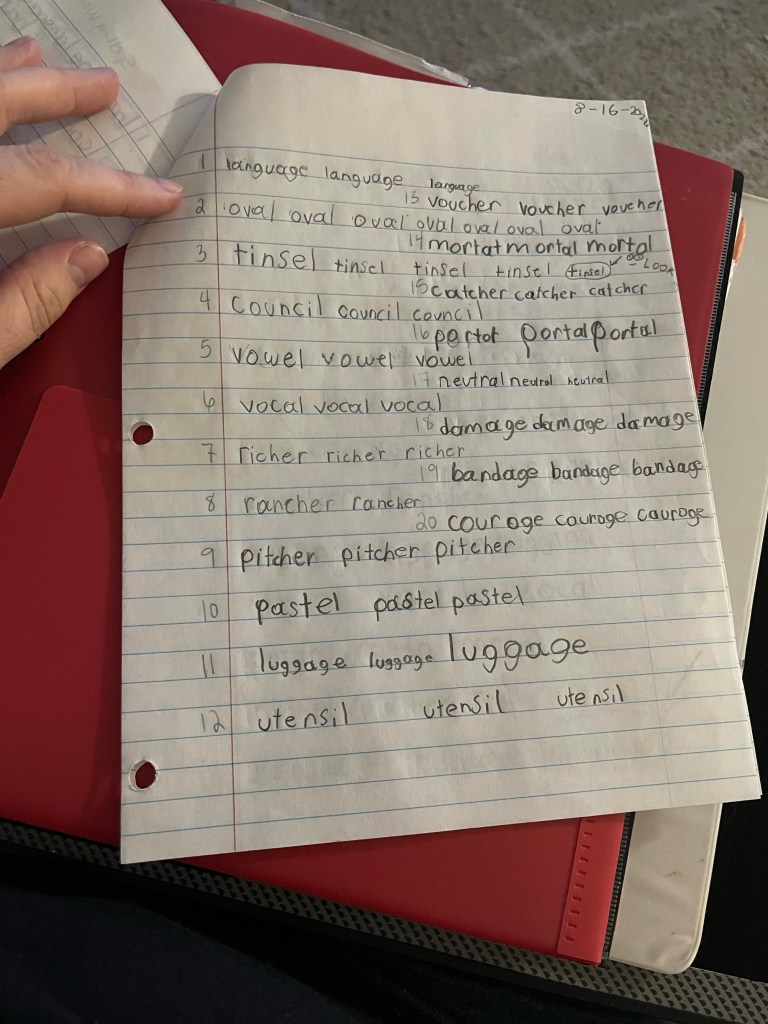 8-16-2022
1 language language language
13 voucher voucher voucher
2 oval oval oval oval oval oval oval
14 mortat mortal mortal
3 tinsel tinsel tinsel tinsel tinsel LOOK
15 catcher catcher catcher
4 council council council
16 portot portal portal
5 vowel vowel vowel
17 neutral neutral neutral
6 vocal vocal vocal
18 damage damage damage
7 richer richer richer
19 bandage bandage bandage
8 rancher rancher
20 couroge couroge couroge
9 pitcher pitcher pitcher
10 pastel pastel pastel
11 luggage luggage luggage
12 utensil utensil utensil